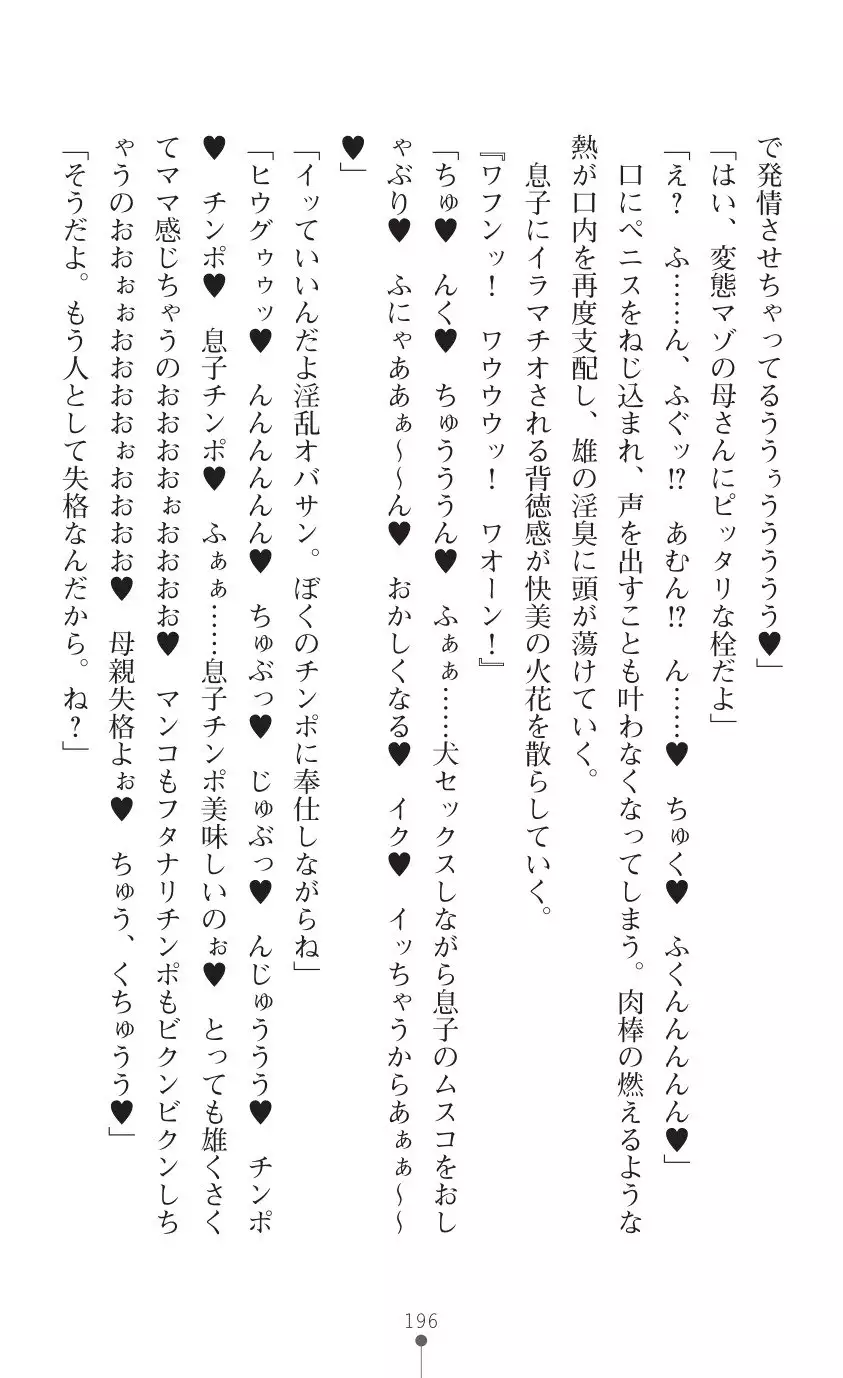 で発情させちゃってるううぅううううう♥」
「はい、変態マゾの母さんにピッタリな栓だよ」
「え？　ふ……ん、ふぐッ!?　あむん!?　ん……♥　ちゅく♥　ふくんんんんん♥」
　口にペニスをねじ込まれ、声を出すことも叶わなくなってしまう。肉棒の燃えるような
熱が口内を再度支配し、雄の淫臭に頭が蕩けていく。
　息子にイラマチオされる背徳感が快美の火花を散らしていく。
『ワフンッ！　ワウウウッ！　ワオーン！』
「ちゅ♥　んく♥　ちゅうううん♥　ふぁぁ……犬セックスしながら息子のムスコをおし
ゃぶり♥　ふにゃああぁ～～ん♥　おかしくなる♥　イク♥　イッちゃうからあぁぁ～～
♥」
「イッていいんだよ淫乱オバサン。ぼくのチンポに奉仕しながらね」
「ヒウグゥゥッ♥　んんんんんん♥　ちゅぶっ♥　じゅぶっ♥　んじゅううう♥　チンポ
♥　チンポ♥　息子チンポ♥　ふぁぁ……息子チンポ美味しいのぉ♥　とっても雄くさく
てママ感じちゃうのおおおおぉおおおお♥　マンコもフタナリチンポもビクンビクンしち
ゃうのおおぉぉおおおおぉおおおお♥　母親失格よぉ♥　ちゅう、くちゅうう♥」
「そうだよ。もう人として失格なんだから。ね？」
196